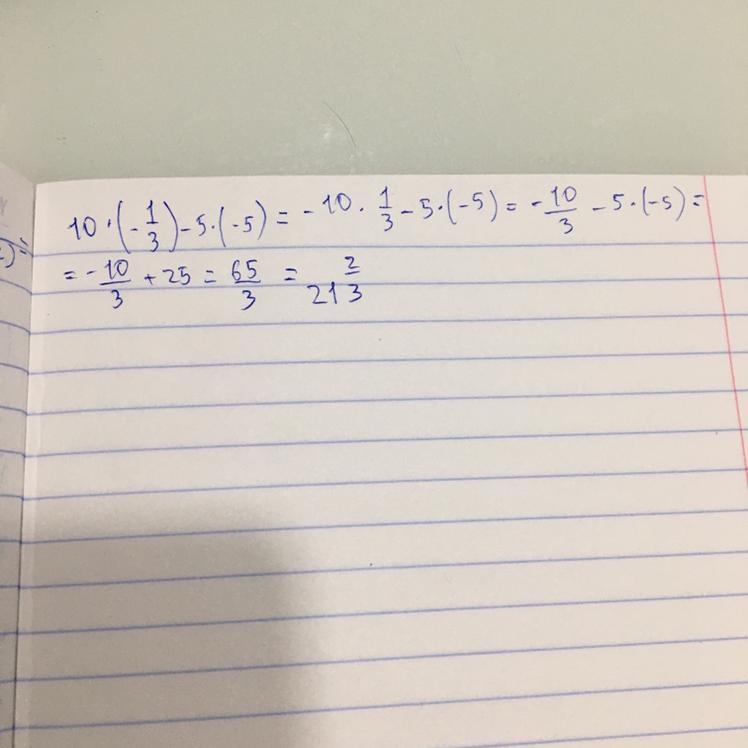 10·(-1/3)-5·(-5)=-10·1/3-5·(-5)=-10/3-5·(-5)=
=-10/3+25=65/3=21 2/3